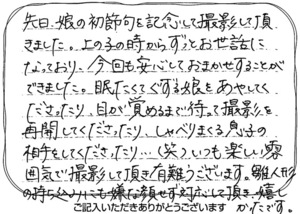 先日、娘の初節句を記念して撮影して頂
きました。上の子の時からずっとお世話に
なっており、今回も安心しておまかせすることが
できました。眠たくてぐずる娘をあやしてく
ださったり、目が覚めるまで待って撮影を
再開してくださったり、しゃべりまくる息子の
相手をしてくださったり…(笑)いつも楽しい雰
囲気で撮影して頂き有難うございます。雛人形
の持ち込みにも嫌な顔せず対応して頂き、嬉し
かたです。
ご記入いただきありがとうございます